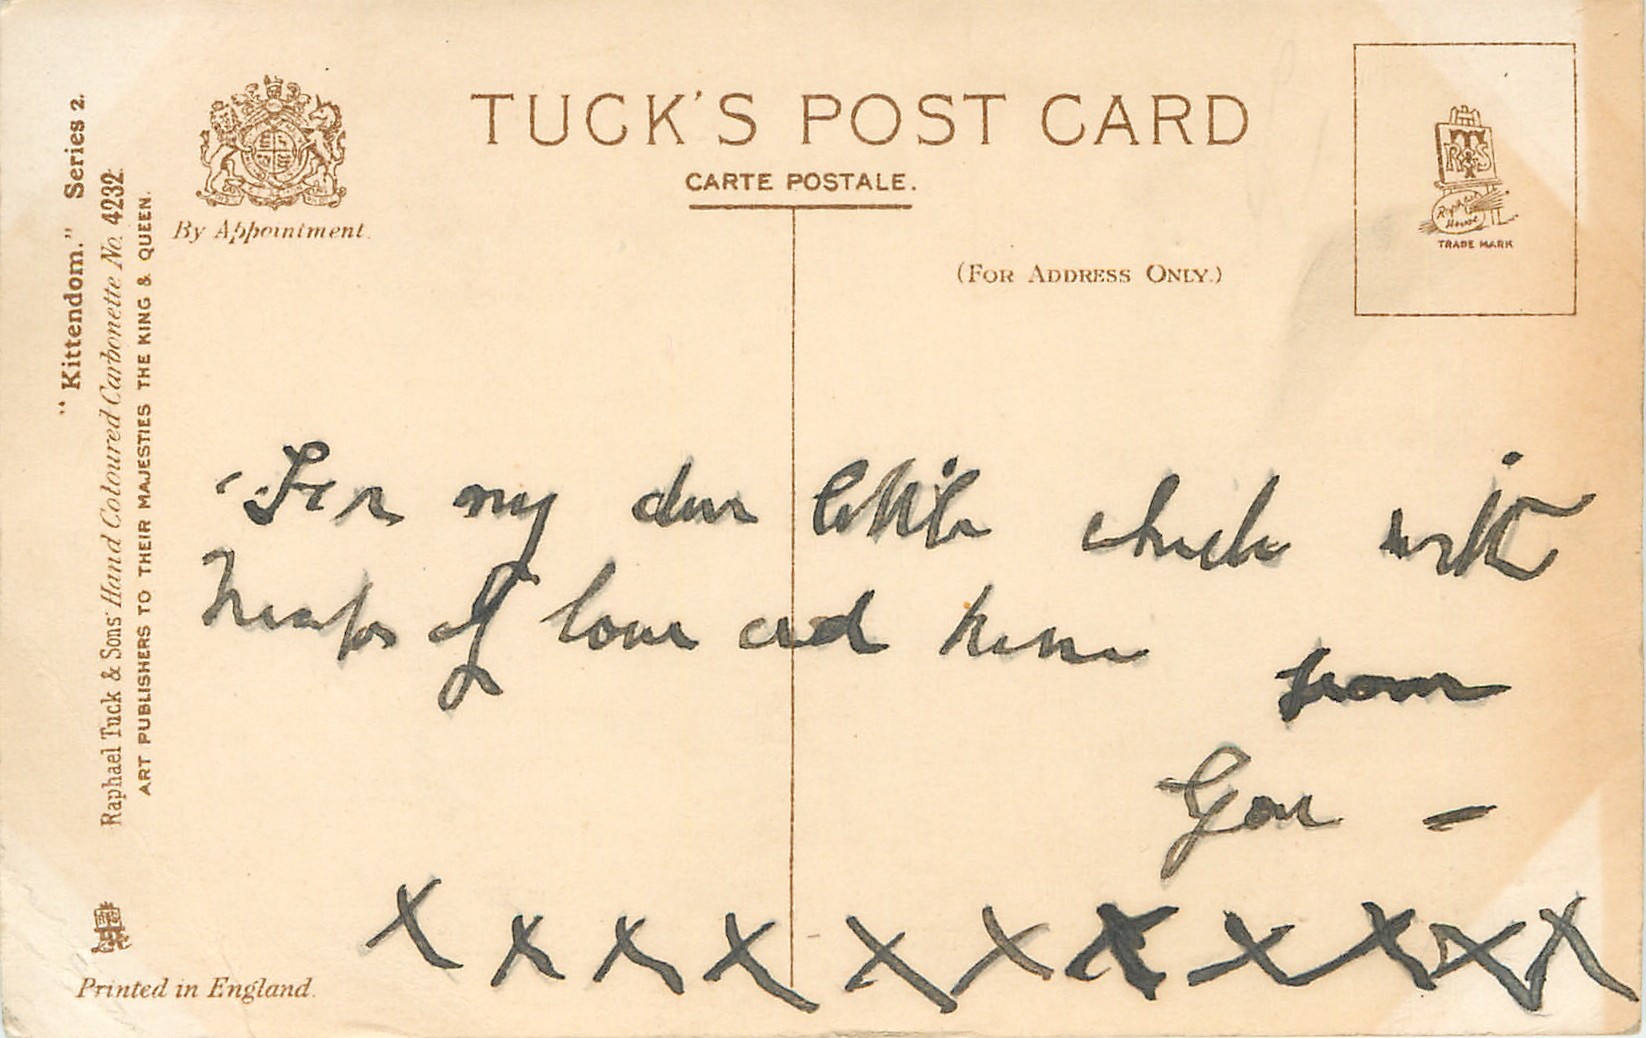 TUCK'S POST CARD
CARTE POSTALE.
By Appointment.
(FOR ADDRESS ONLY.)
T
R & S
Raphael
House
TRADE MARK
"Kittendom." Series 2.
Raphael Tuck & Sons' Hand Coloured Carbonette No. 4232.
ART PUBLISHERS TO THEIR MAJESTIES THE KING & QUEEN.
For my dear little chick with
heaps of love and kisses
from
X X X X X X X X X X X
Printed in England.